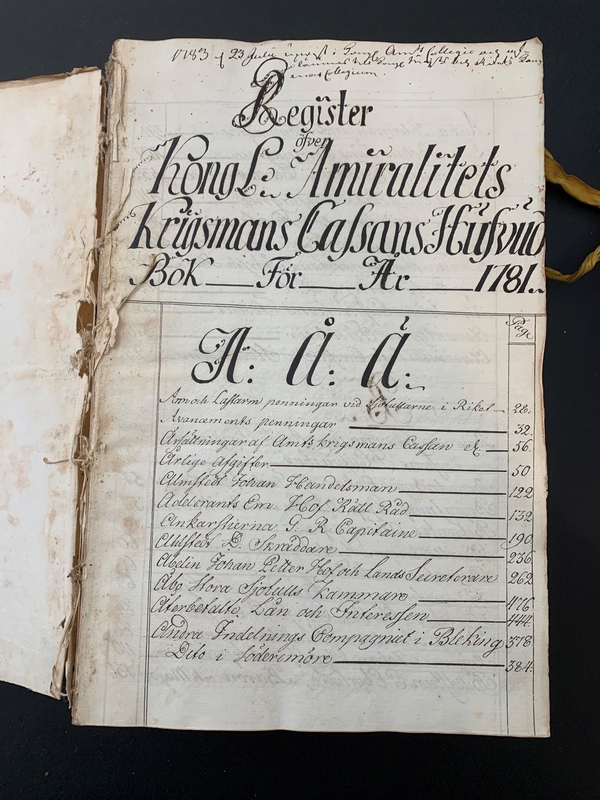 1783 d 23 Julii in Kongl Amts Collegio och
Collegium
Register
öfver
Kongl: Amiralitets
Krigsmans Cassans Hufvud
Bok För År 1781.
Page
A: Å: Ä:
Am och Lastarm penningar vid Siötullarne i Riket 28.
Avancements penningar 32.
Afsättningar af Amts krigsmans Cassan 56.
Årlige Afgifter 50
Almstedt Johan Handelsman 122
Adlerants Em: Hof Rätt Råd 132
Ankarstierna G R Capitaine 190
Ahlstedt Skräddare 236
Johan Petter Hof och Lands Secreterare 262
Åbo Stora Siötulls Kammare 476
Återbetalte Lån och Interessen 444.
Andra Indelnings Compagniet i Bleking 378
Dito i Söderemöre 384.